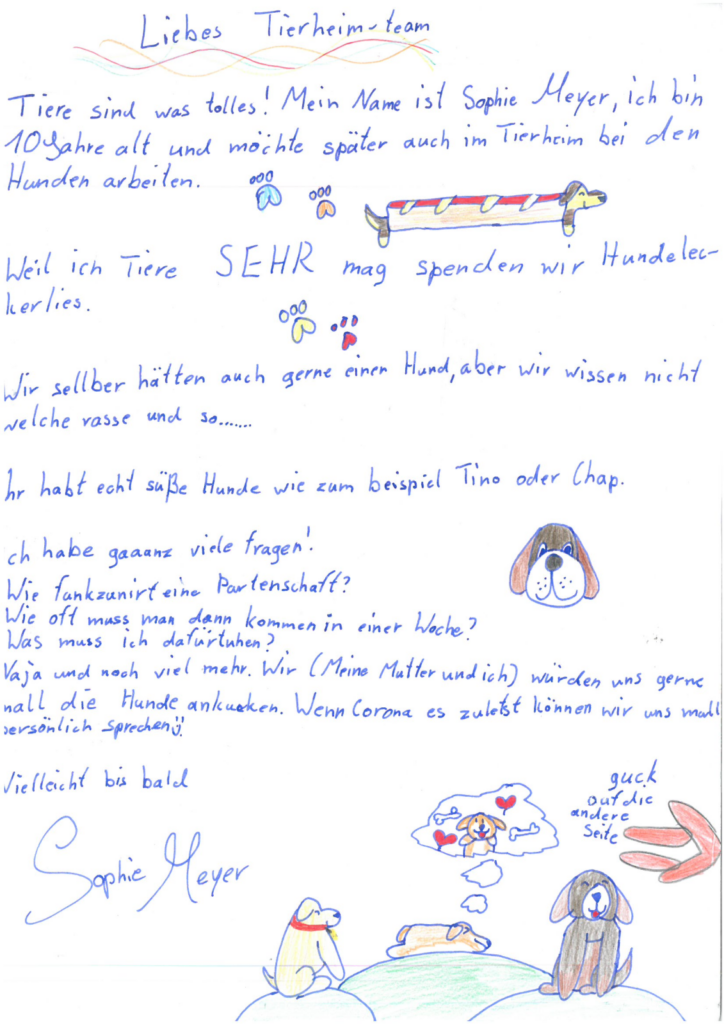 Liebes Tierheim-team
Tiere sind was tolles! Mein Name ist Sophie Meyer, ich bin
10 Jahre alt und möchte später auch im Tierheim bei den
Hunden arbeiten.
Weil ich Tiere SEHR mag spenden wir Hundelec-
kerlies.
Wir sellber hätten auch gerne einen Hund, aber wir wissen nicht
welche rasse und so.......
Ihr habt echt süße Hunde wie zum beispiel Tino oder Chap.
Ich habe gaaanz viele fragen!
Wie funkzunirt eine Partenschaft?
Wie oft muss man dann kommen in einer Woche?
Was muss ich dafürtuhen?
Naja und noch viel mehr. Wir (Meine Mutter und ich) würden uns gerne
mall die Hunde ankucken. Wenn Corona es zuletst können wir uns mall
persönlich sprechen!
Vielleicht bis bald
guck
auf die
andere
Seite
Sophie Meyer